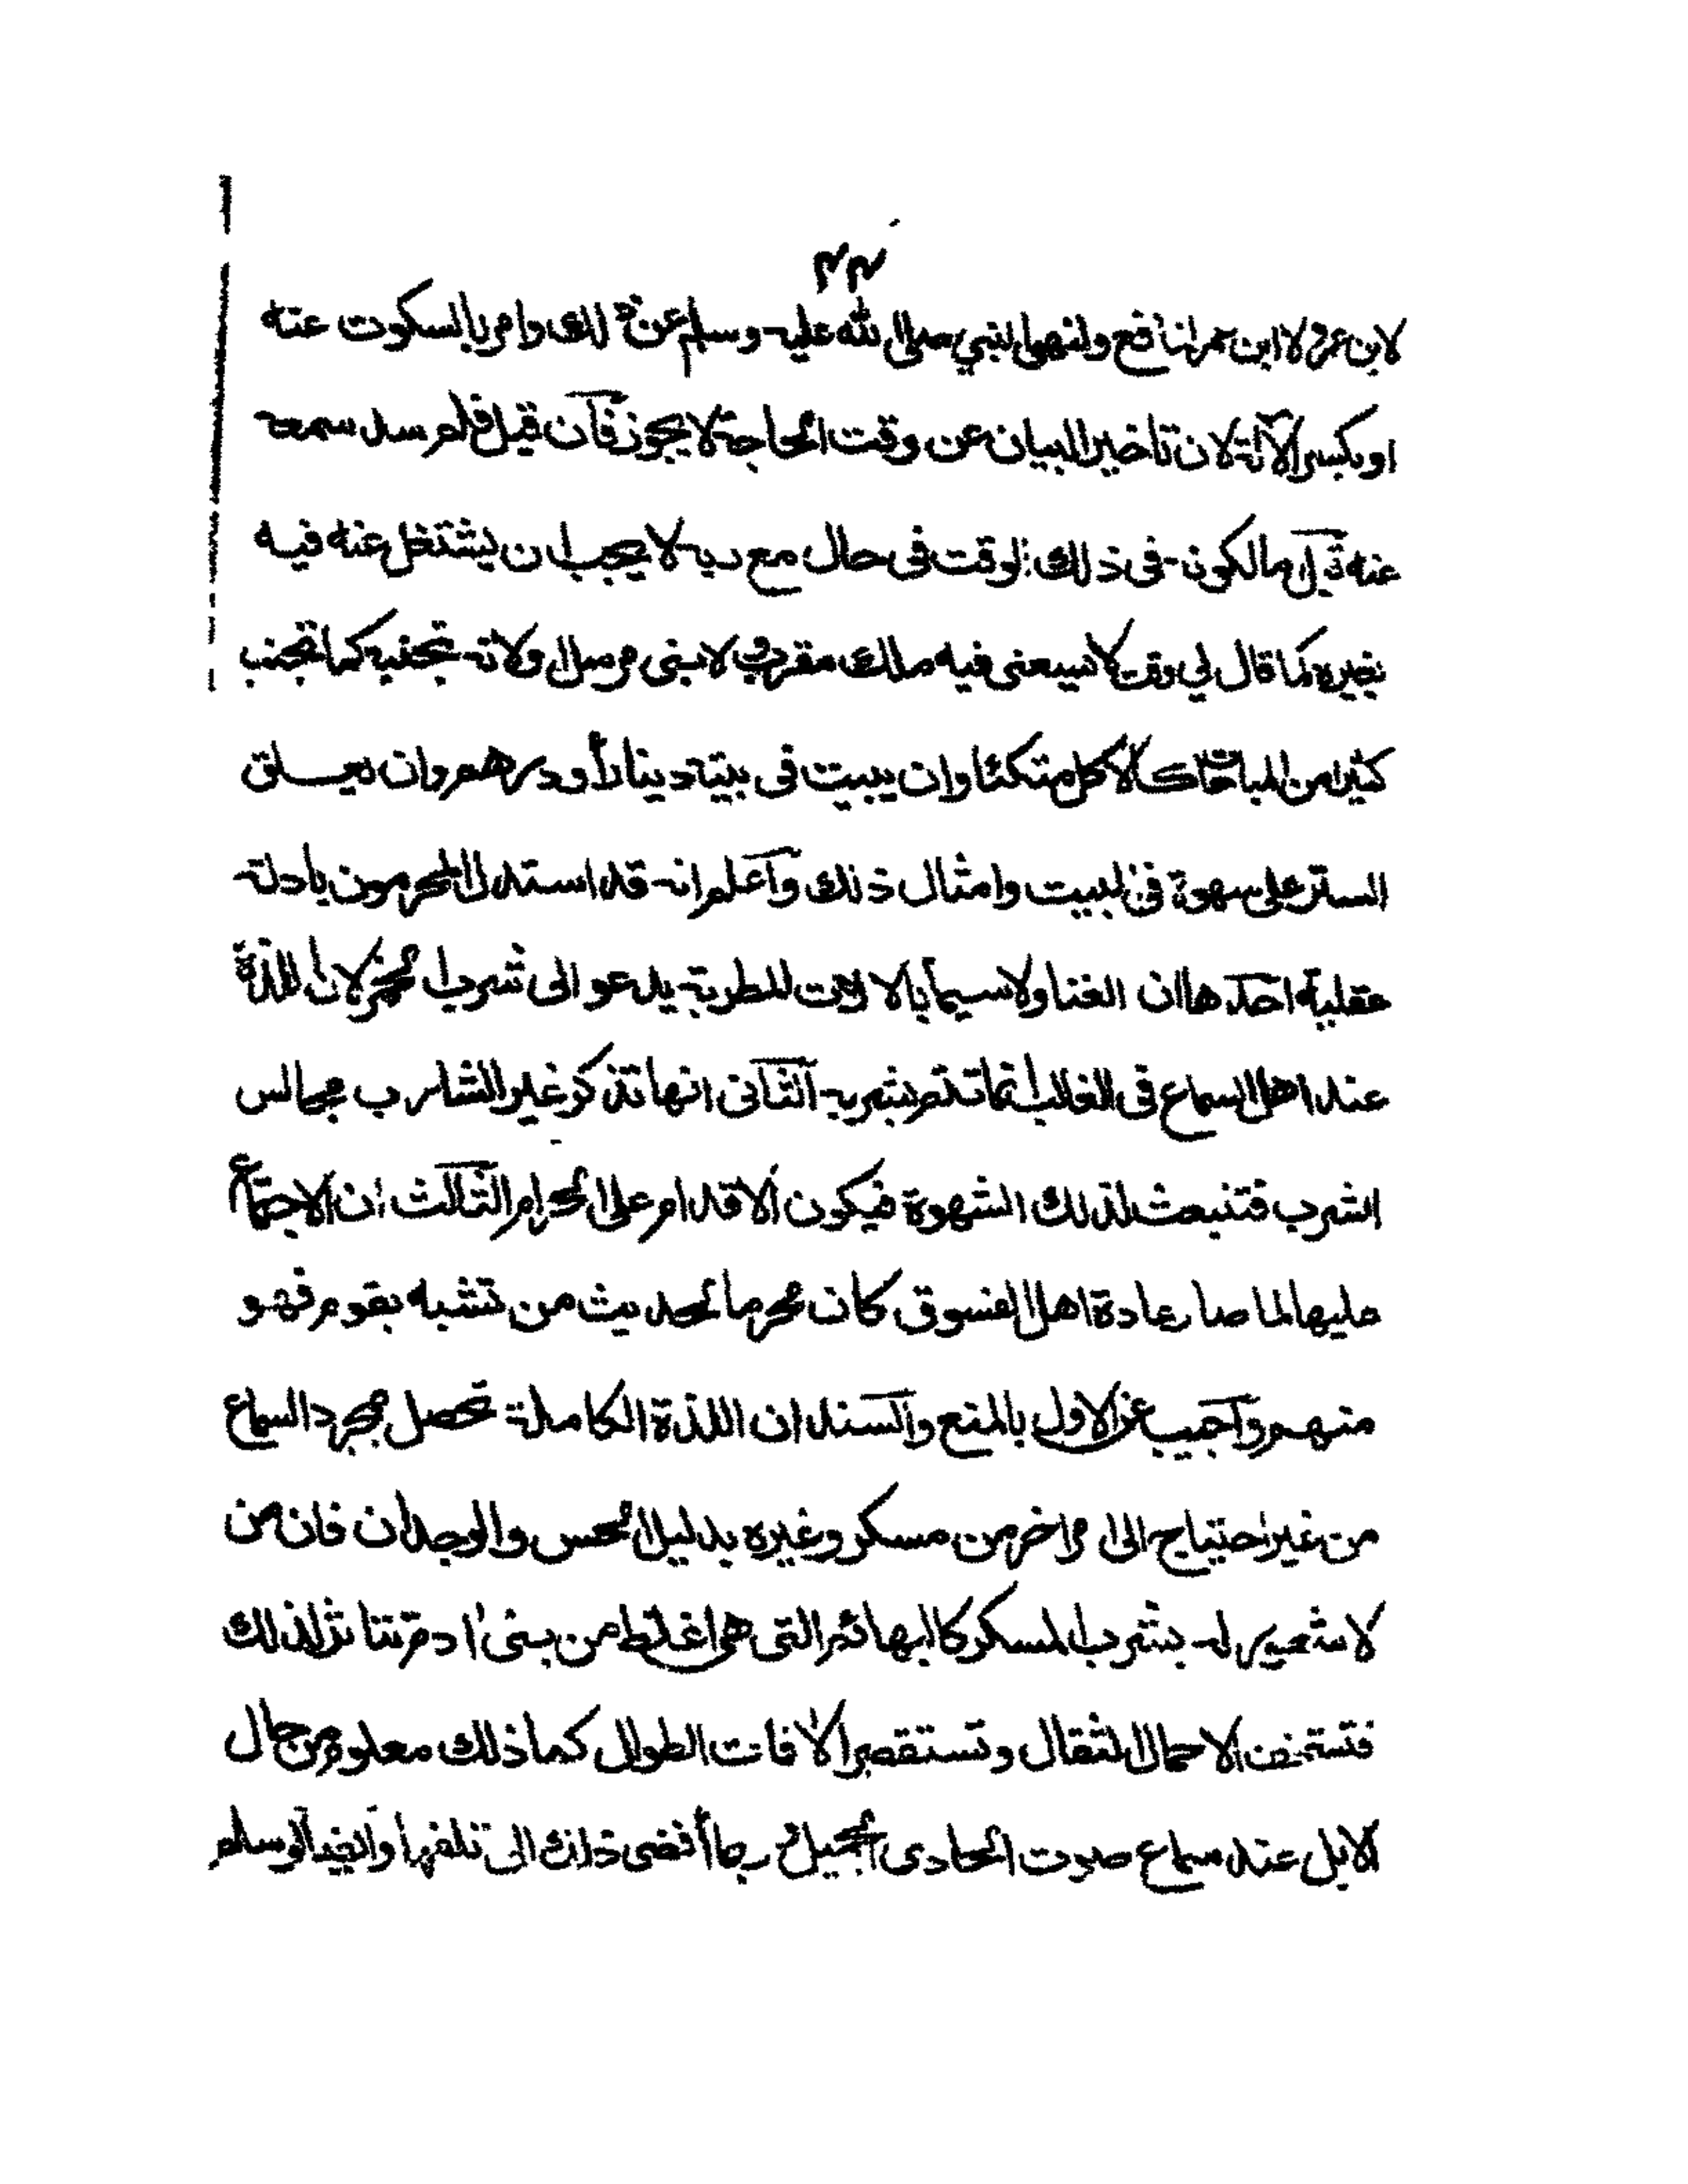 ۲۴
لابن عمر ولا ابن عمر لنافع ولنهى النبي صلى الله عليه وسلم عن ذلك وامر بالسكوت عنه
او بكسر الآلة لان تاخير البيان عن وقت الحاجة لا يجوز فان قيل فلم سد سمعه
عنه قيل اما لكونه فى ذلك الوقت فى حال مع ربه لا يحب ان يشتغل عنه فيه
بغيره كما قال لي وقت لا يسعنى فيه ملك مقرب ولا نبى مرسل ولانه تجنبه كما تجنب
كثيرا من المباحات كالاكل متكئا وان يبيت فى بيته دينار أو درهم وان يعلق
الستر على سهوة فى البيت وامثال ذلك واعلم انه قد استدل المحرمون بادلة
عقلية احدها ان الغنا ولاسيما بالالات المطربة يدعو الى شرب الخمر لان اللذة
عند اهل السماع فى الغالب انما تتم بشربه الثانى انها تذكر غير الشارب مجالس
الشرب فتنبعث لذلك الشهوة فيكون الاقدام على الحرام الثالث ان الاجتماع
عليها لما صار عادة اهل الفسوق كان محرما لحديث من تشبه بقوم فهو
منهم واجيب عن الاول بالمنع والسند ان اللذة الكاملة تحصل بمجرد السماع
من غير احتياج الى امر اخر من مسكر وغيره بدليل الحس والوجدان فان من
لا شعور له بشرب المسكر كالبهائم التى هى اغلظ من بنى ادم تتاثر لذلك
فتستخف الاحمال الثقال وتستقصر الافات الطوال كما ذلك معلوم من حال
الابل عند سماع صوت الحادى الجميل وربما أفضى ذلك الى تلفها وايضا لو سلم